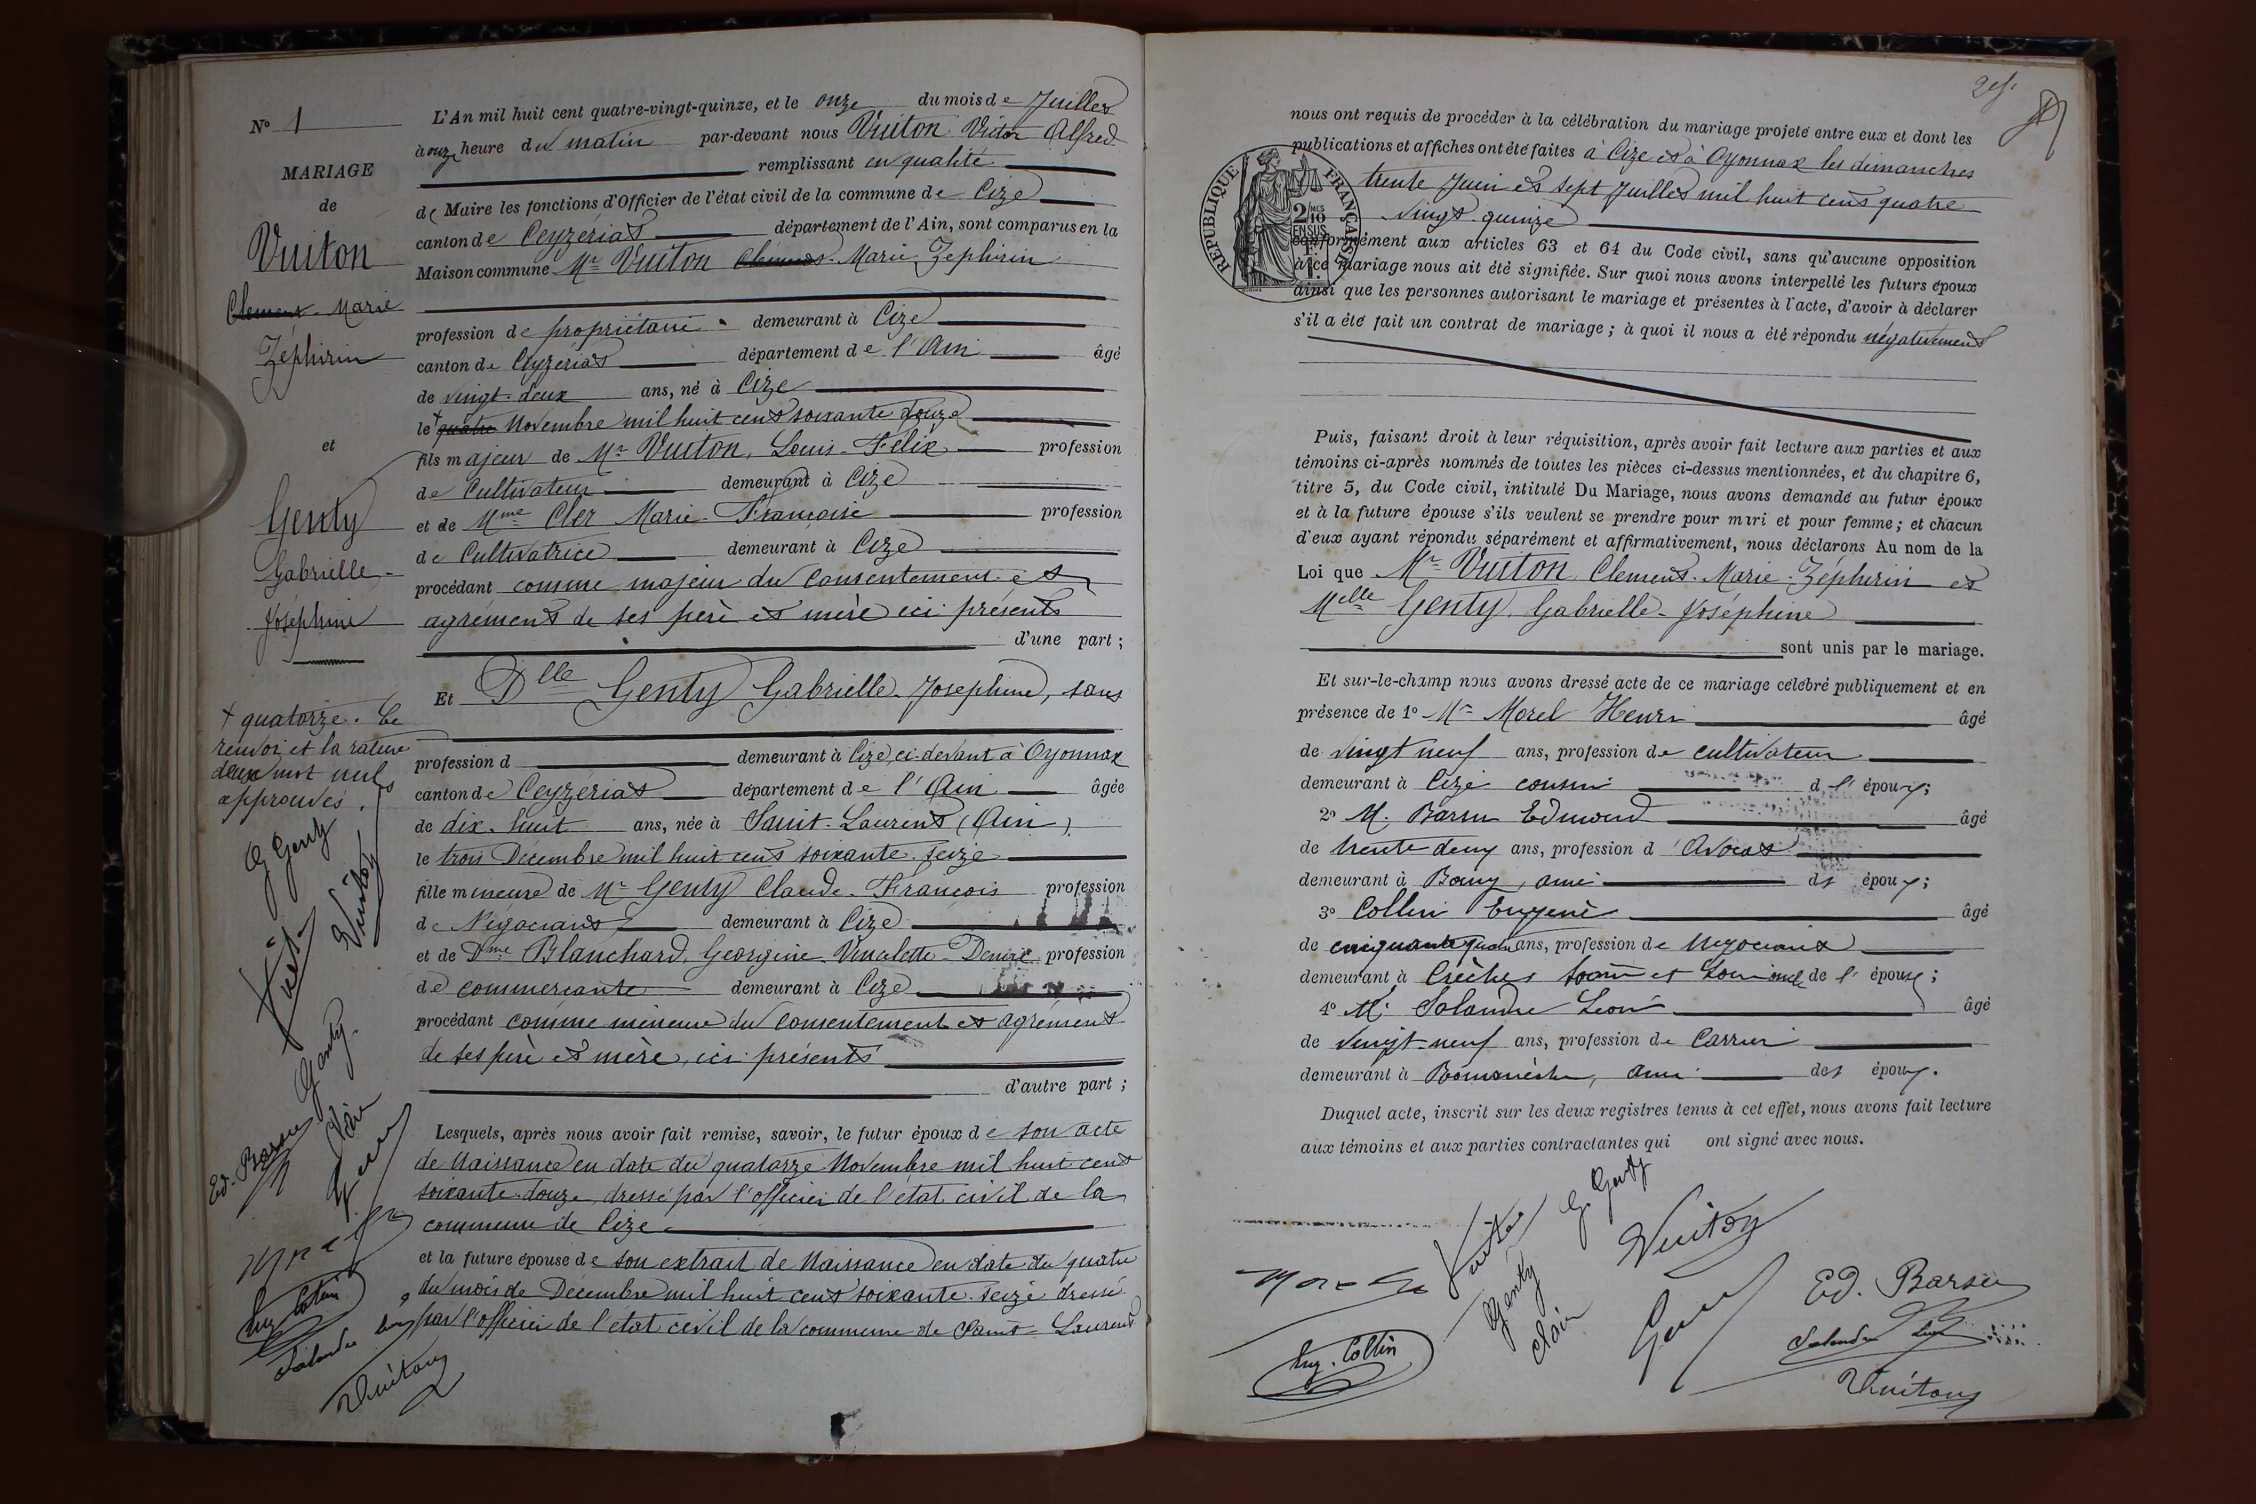 N° 1
MARIAGE
de
Vuiton
Clément Marie
Zéphirin
et
Genty
Gabrielle-
Joséphine
+ quatorze. Ce
renvoi et la rature
deux mot nuls
approuvés.
G Genty
Vuiton
Genty
Ed. Barsu
Morel
Eug. Collin
Vuiton
L'An mil huit cent quatre-vingt-quinze, et le onze du mois de Juillet
à onze heure du matin par-devant nous Vuiton Victor Alfred
remplissant en qualité
de Maire les fonctions d'Officier de l'état civil de la commune de Cize
canton de Ceyzériat département de l'Ain, sont comparus en la
Maison commune Mr Vuiton Clément Marie Zephirin
profession de propriétaire demeurant à Cize
canton de Ceyzeriat département de l'Ain âgé
de vingt-deux ans, né à Cize
le + quatre Novembre mil huit cent soixante douze
fils majeur de Mr Vuiton, Louis-Félix profession
de Cultivateur demeurant à Cize
et de Mme Cler Marie-Françoise profession
de Cultivatrice demeurant à Cize
procédant comme majeur du consentement et
agrément de ses père et mère ici présents
d'une part;
Et Dlle Genty Gabrielle-Josephine, sans
profession d demeurant à Cize, ci-devant à Oyonnax
canton de Ceyzériat département de l'Ain âgée
de dix-huit ans, née à Saint-Laurent (Ain)
le trois Décembre mil huit cent soixante-seize
fille mineure de Mr Genty Claude-François profession
de Négociant demeurant à Cize
et de Dme Blanchard, Georgine Denise profession
de commerçante demeurant à Cize
procédant comme mineure du consentement et agrément
de ses père et mère, ici présents
d'autre part;
Lesquels, après nous avoir fait remise, savoir, le futur époux de son acte
de Naissance en date du quatorze Novembre mil huit cent
soixante-douze, dressé par l'officier de l'état civil de la
commune de Cize
et la future épouse de son extrait de Naissance en date du quatre
du mois de Décembre mil huit cent soixante-seize dressé
par l'officier de l'état civil de la commune de Saint-Laurent
nous ont requis de procéder à la célébration du mariage projeté entre eux et dont les
publications et affiches ont été faites à Cize et à Oyonnax les dimanches
trente Juin et sept Juillet mil huit cent quatre
vingt-quinze
RÉPUBLIQUE FRANÇAISE
2/10 MES EN SUS
conformément aux articles 63 et 64 du Code civil, sans qu'aucune opposition
à ce mariage nous ait été signifiée. Sur quoi nous avons interpellé les futurs époux
ainsi que les personnes autorisant le mariage et présentes à l'acte, d'avoir à déclarer
s'il a été fait un contrat de mariage; à quoi il nous a été répondu négativement
Puis, faisant droit à leur réquisition, après avoir fait lecture aux parties et aux
témoins ci-après nommés de toutes les pièces ci-dessus mentionnées, et du chapitre 6,
titre 5, du Code civil, intitulé Du Mariage, nous avons demandé au futur époux
et à la future épouse s'ils veulent se prendre pour mari et pour femme; et chacun
d'eux ayant répondu séparément et affirmativement, nous déclarons Au nom de la
Loi que Mr Vuiton Clément-Marie-Zéphirin et
Melle Genty, Gabrielle-Joséphine
sont unis par le mariage.
Et sur-le-champ nous avons dressé acte de ce mariage célébré publiquement et en
présence de 1° Mr Morel Henri âgé
de vingt neuf ans, profession de cultivateur
demeurant à Cize cousin d l' époux;
2° M. Barsu Edmond âgé
de trente deux ans, profession d'Avocat
demeurant à Bourg, ami des époux;
3° Collin Eugène âgé
de cinquante quatre ans, profession de Négociant
demeurant à Crèches de l' épouse;
4° M. Salandre Léon âgé
de vingt-neuf ans, profession de Carrier
demeurant à Romanèche, ami des époux.
Duquel acte, inscrit sur les deux registres tenus à cet effet, nous avons fait lecture
aux témoins et aux parties contractantes qui ont signé avec nous.
G. Genty
Vuiton
Morel
Genty
Ed. Barsu
Eug. Collin
Vuiton